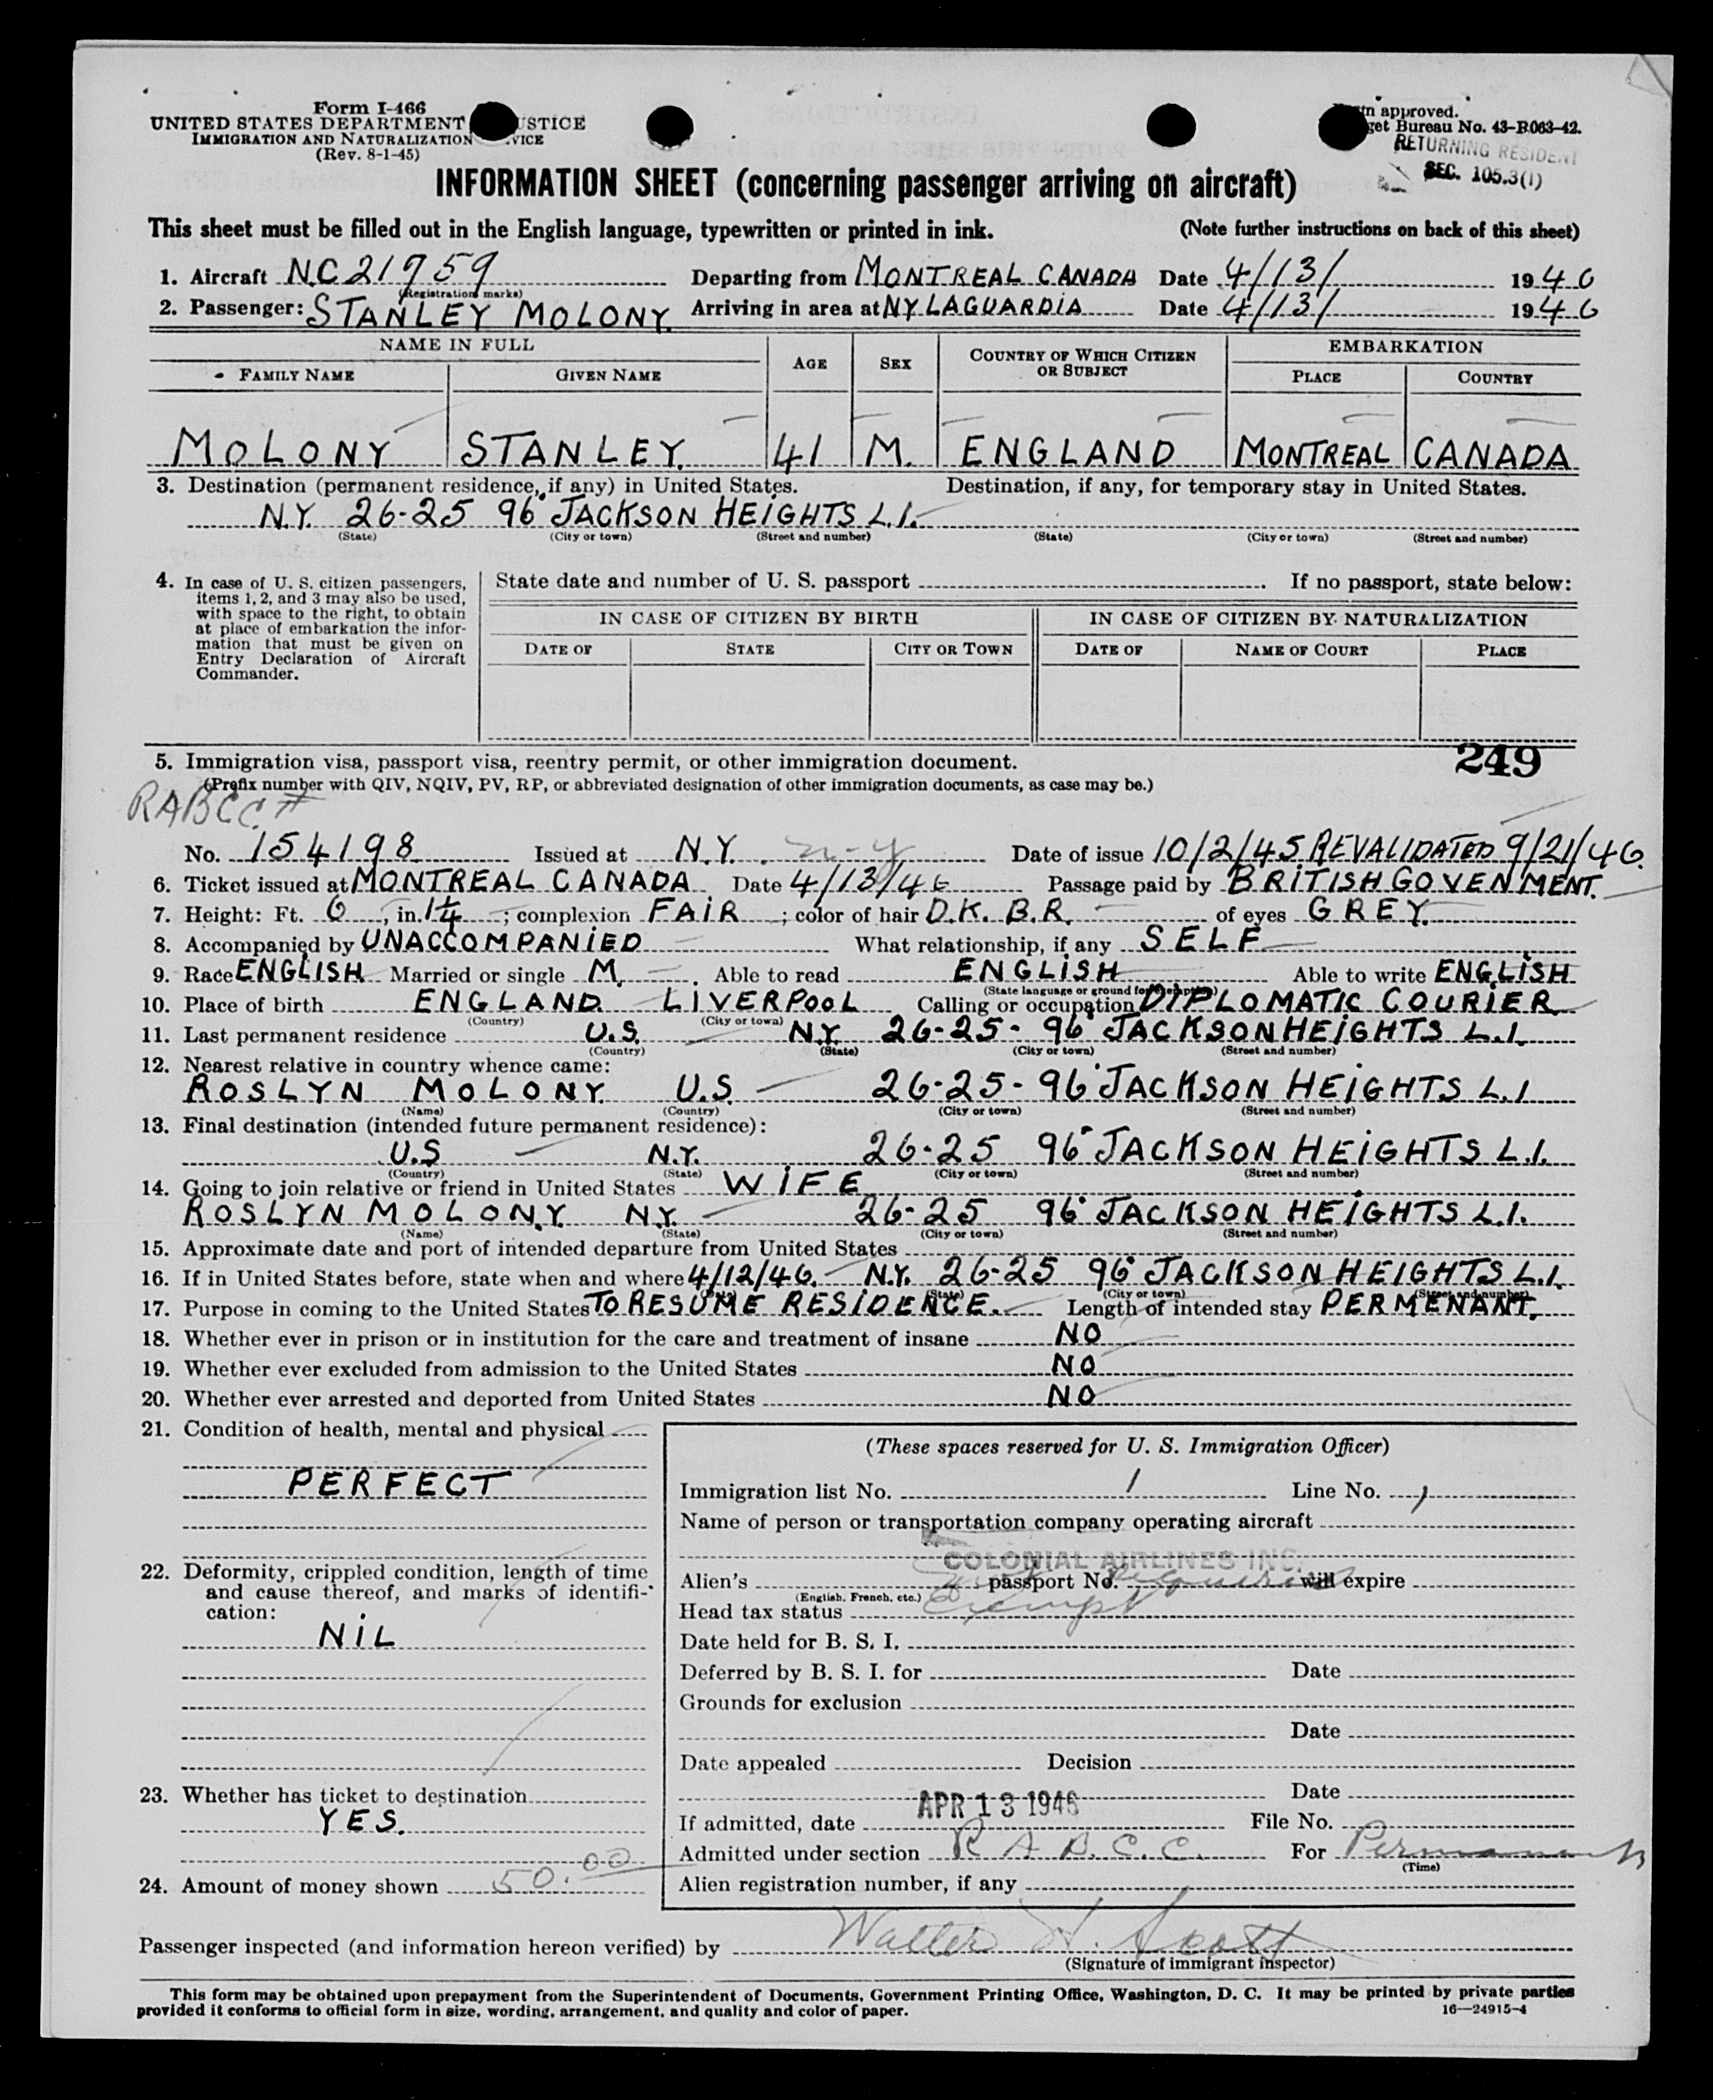 Form I-466
UNITED STATES DEPARTMENT USTICE
IMMIGRATION AND NATURALIZATION VICE
(Rev. 8-1-45)
approved.
get Bureau No. 43-R063-42.
RETURNING RESIDENT
SEC. 105.3(1)
INFORMATION SHEET (concerning passenger arriving on aircraft)
This sheet must be filled out in the English language, typewritten or printed in ink. (Note further instructions on back of this sheet)
1. Aircraft NC21759 Departing from MONTREAL CANADA Date 4/13/ 1946
(Registration marks)
2. Passenger: STANLEY MOLONY Arriving in area at NY LAGUARDIA Date 4/13/ 1946
NAME IN FULL AGE SEX COUNTRY OF WHICH CITIZEN OR SUBJECT EMBARKATION
FAMILY NAME GIVEN NAME PLACE COUNTRY
MOLONY STANLEY. 41 M. ENGLAND MONTREAL CANADA
3. Destination (permanent residence, if any) in United States. Destination, if any, for temporary stay in United States.
N.Y. 26-25 96 JACKSON HEIGHTS L.I.
(State) (City or town) (Street and number) (State) (City or town) (Street and number)
4. In case of U. S. citizen passengers, items 1, 2, and 3 may also be used, with space to the right, to obtain at place of embarkation the information that must be given on Entry Declaration of Aircraft Commander.
State date and number of U. S. passport If no passport, state below:
IN CASE OF CITIZEN BY BIRTH IN CASE OF CITIZEN BY NATURALIZATION
DATE OF STATE CITY OR TOWN DATE OF NAME OF COURT PLACE
249
5. Immigration visa, passport visa, reentry permit, or other immigration document.
(Prefix number with QIV, NQIV, PV, RP, or abbreviated designation of other immigration documents, as case may be.)
RABCC #
No. 154198 Issued at N.Y. n-y Date of issue 10/2/45 REVALIDATED 9/21/46.
6. Ticket issued at MONTREAL CANADA Date 4/13/46 Passage paid by BRITISH GOVENMENT.
7. Height: Ft. 6, in. 1¼; complexion FAIR; color of hair D.K. B.R. of eyes GREY
8. Accompanied by UNACCOMPANIED What relationship, if any SELF
9. Race ENGLISH Married or single M. Able to read ENGLISH Able to write ENGLISH
(State language or ground for exemption)
10. Place of birth ENGLAND LIVERPOOL Calling or occupation DIPLOMATIC COURIER
(Country) (City or town)
11. Last permanent residence U.S. N.Y. 26-25- 96 JACKSON HEIGHTS L.I.
(Country) (State) (City or town) (Street and number)
12. Nearest relative in country whence came:
ROSLYN MOLONY. U.S. 26-25- 96 JACKSON HEIGHTS L.I.
(Name) (Country) (City or town) (Street and number)
13. Final destination (intended future permanent residence):
U.S N.Y. 26-25 96 JACKSON HEIGHTS L.I.
(Country) (State) (City or town) (Street and number)
14. Going to join relative or friend in United States WIFE
ROSLYN MOLONY N.Y. 26-25 96 JACKSON HEIGHTS L.I.
(Name) (State) (City or town) (Street and number)
15. Approximate date and port of intended departure from United States
16. If in United States before, state when and where 4/12/46. N.Y. 26-25 96 JACKSON HEIGHTS L.I.
(State) (City or town) (Street and number)
17. Purpose in coming to the United States TO RESUME RESIDENCE. Length of intended stay PERMENANT.
18. Whether ever in prison or in institution for the care and treatment of insane NO
19. Whether ever excluded from admission to the United States NO
20. Whether ever arrested and deported from United States NO
21. Condition of health, mental and physical
PERFECT
22. Deformity, crippled condition, length of time and cause thereof, and marks of identification:
NIL
23. Whether has ticket to destination
YES.
24. Amount of money shown 50.00
(These spaces reserved for U. S. Immigration Officer)
Immigration list No. 1 Line No. 1
Name of person or transportation company operating aircraft
COLONIAL AIRLINES INC.
Alien's passport No. will expire
(English, French, etc.)
Head tax status Exempt
Date held for B. S. I.
Deferred by B. S. I. for Date
Grounds for exclusion
Date
Date appealed Decision
Date
If admitted, date APR 13 1946 File No.
Admitted under section R A B. C. C. For Permanent
(Time)
Alien registration number, if any
Passenger inspected (and information hereon verified) by Walter H. Scott
(Signature of immigrant inspector)
This form may be obtained upon prepayment from the Superintendent of Documents, Government Printing Office, Washington, D. C. It may be printed by private parties
provided it conforms to official form in size, wording, arrangement, and quality and color of paper. 16—24915-4